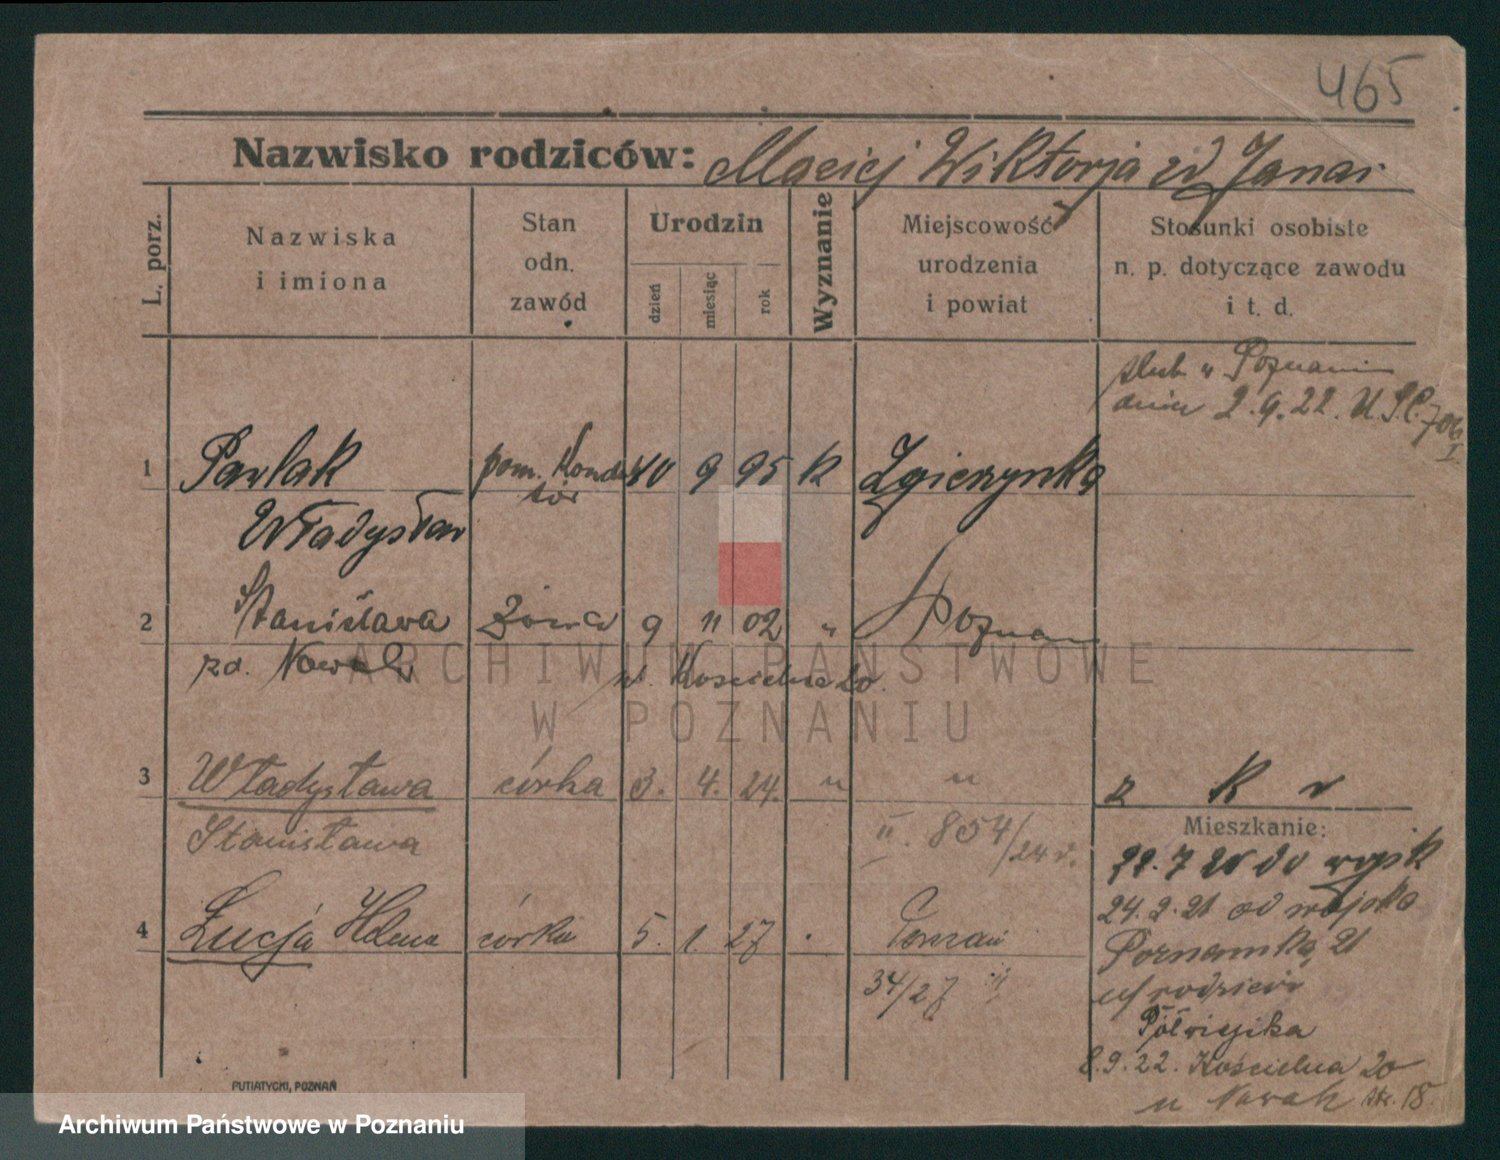 465
Nazwisko rodziców: Maciej Wiktorja zd Janas
L. porz.
Nazwiska
i imiona
Stan
odn.
zawód
Urodzin
dzień
miesiąc
rok
Wyznanie
Miejscowość
urodzenia
i powiat
Stosunki osobiste
n. p. dotyczące zawodu
i t. d.
ślub w Poznaniu
dnia 2.9.22. U.S.C. 706
I.
1 Pawlak pom. Konduk 9 95 k
tór
Władysław
2 Stanisława żona 9 11 02 " Poznań
zd. Nowak ul. Kościelna 20.
ARCHIWUM PAŃSTWOWE
W POZNANIU
3 Władysława córka 3. 4. 24. " "
z k r
Stanisława II. 854/24 r.
Mieszkanie:
22.7 20 do wojsk
24.2.21 od wojska
4 Łucja Helena córka 5. 1. 27 . Poznań
34/27
Poznańska 21
u/ rodziców
Półwiejska
8.9.22. Kościelna 20
u Nowak str. 18.
PUTIATYCKI, POZNAŃ
Archiwum Państwowe w Poznaniu